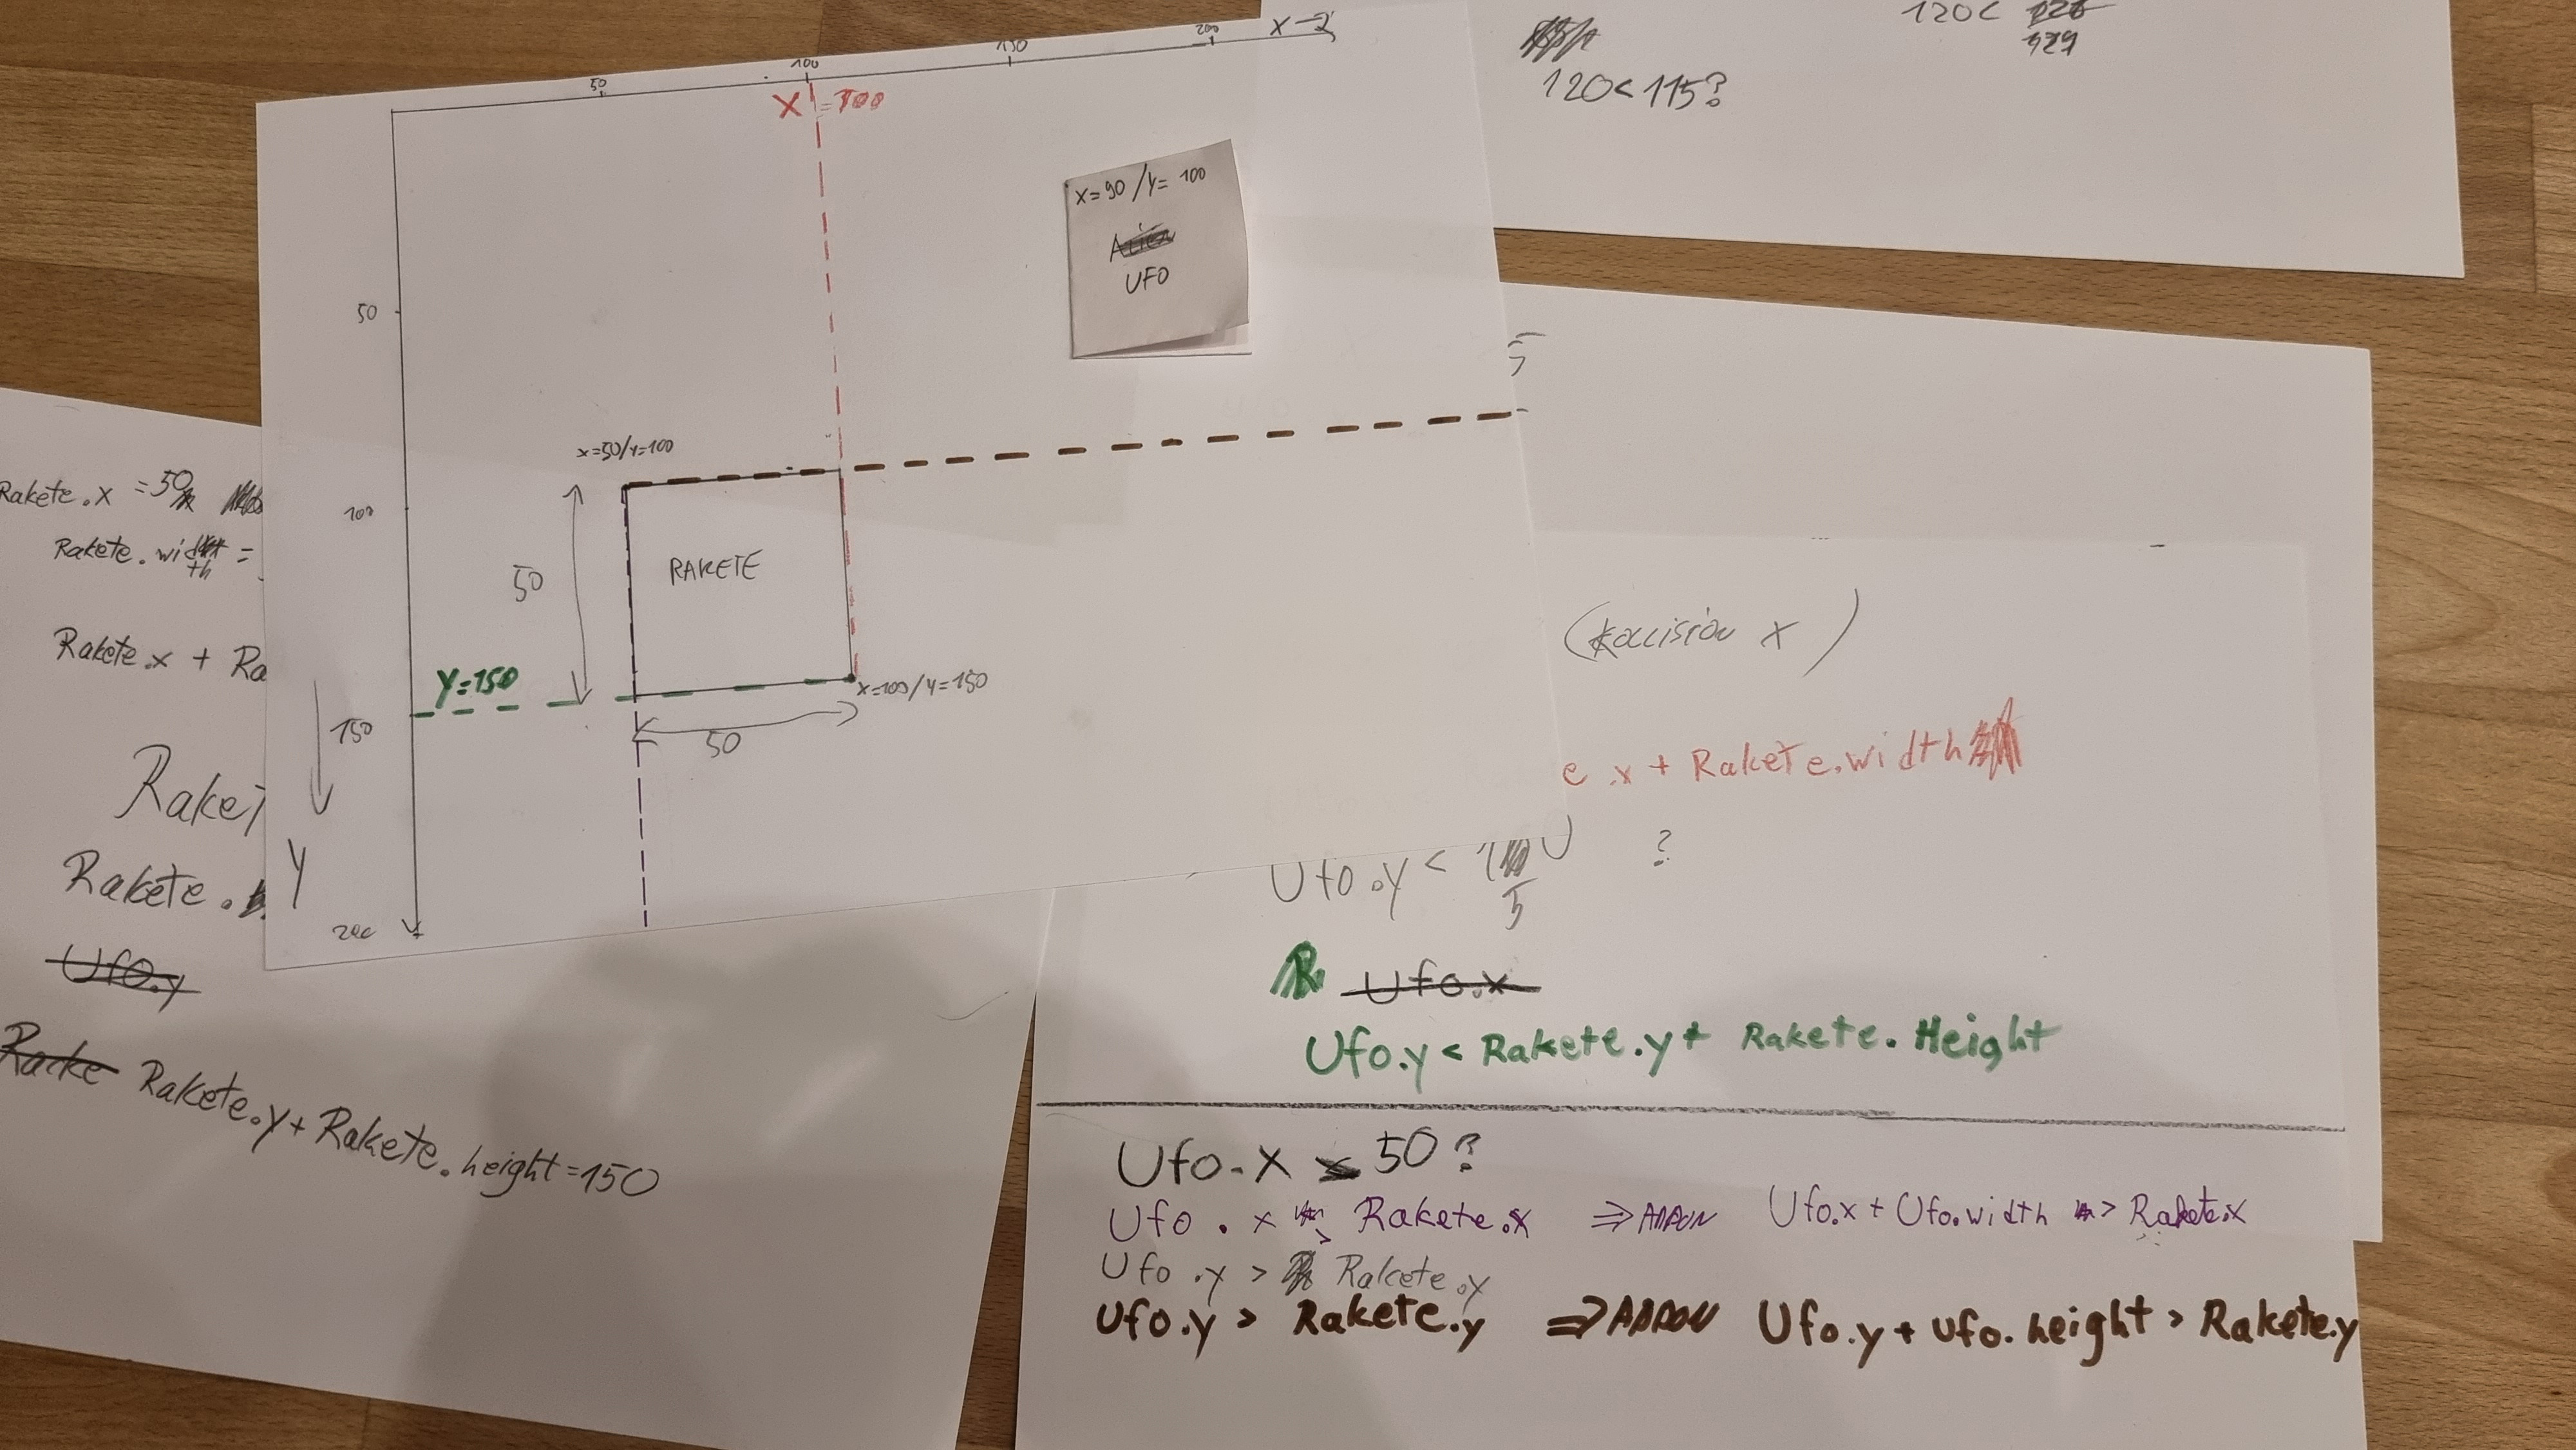 120<
129
120<115?
50
100
150
200
X
X=100
X=90/Y=100
UFO
50
x=50/Y=100
100
50
RAKETE
Y=150
x=100/Y=150
150
50
Y
200
Rakete.x =50
Rakete.width =
Rakete.x +
Rakete.
Ufo.y
Racke Rakete.y+Rakete.height=150
5
(Kollision x)
e.x + Rakete.width
Ufo.y < ?
5
Ufo.x
Ufo.y < Rakete.y+ Rakete.Height
Ufo.X 50?
Ufo.x > Rakete.x ⇒ ADDON Ufo.x + Ufo.width > Rakete.x
Ufo.y > Rakete.y
Ufo.y > Rakete.y ⇒ ADDON Ufo.y + ufo.height > Rakete.y